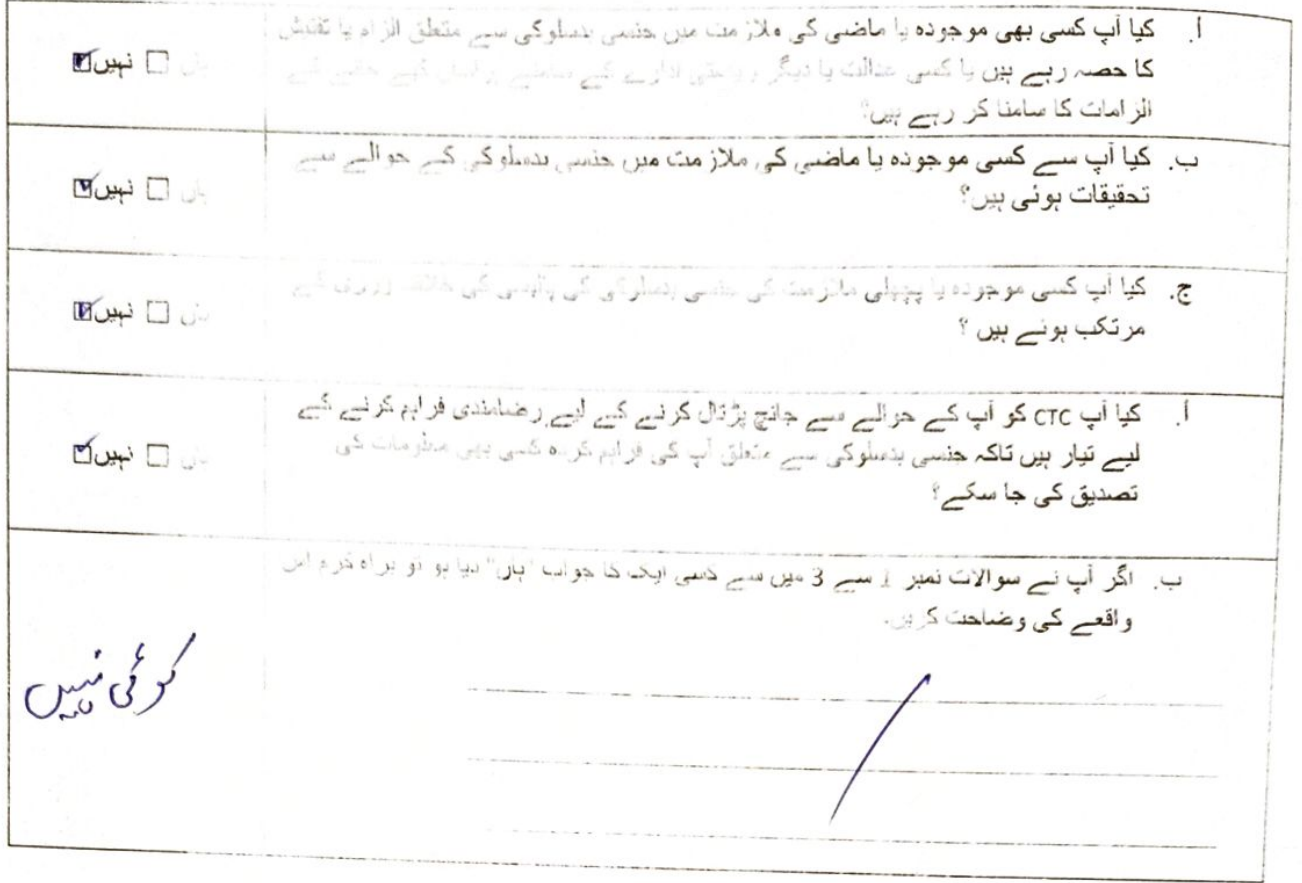 أ. کیا آپ کسی بھی موجودہ یا ماضی کی ملازمت میں جنسی بدسلوکی سے متعلق الزام یا تفتیش
کا حصہ رہے ہیں یا کسی عدالت یا دیگر ریاستی ادارے کے سامنے
الزامات کا سامنا کر رہے ہیں؟
ہاں ☐ نہیں ☑
ب. کیا آپ سے کسی موجودہ یا ماضی کی ملازمت میں جنسی بدسلوکی کے حوالے سے
تحقیقات ہوئی ہیں؟
ہاں ☐ نہیں ☑
ج. کیا آپ کسی موجودہ یا پچھلی ملازمت کی جنسی بدسلوکی کی پالیسی کی خلاف ورزی کے
مرتکب ہوئے ہیں ؟
ہاں ☐ نہیں ☑
أ. کیا آپ CTC کو آپ کے حوالے سے جانچ پڑتال کرنے کے لیے رضامندی فراہم کرنے کے
لیے تیار ہیں تاکہ جنسی بدسلوکی سے متعلق آپ کی فراہم کردہ کسی بھی معلومات کی
تصدیق کی جا سکے؟
ہاں ☐ نہیں ☑
ب. اگر آپ نے سوالات نمبر 1 سے 3 میں سے کسی ایک کا جواب "ہاں" دیا ہو تو براہ کرم اس
واقعے کی وضاحت کریں۔
کوئی نہیں